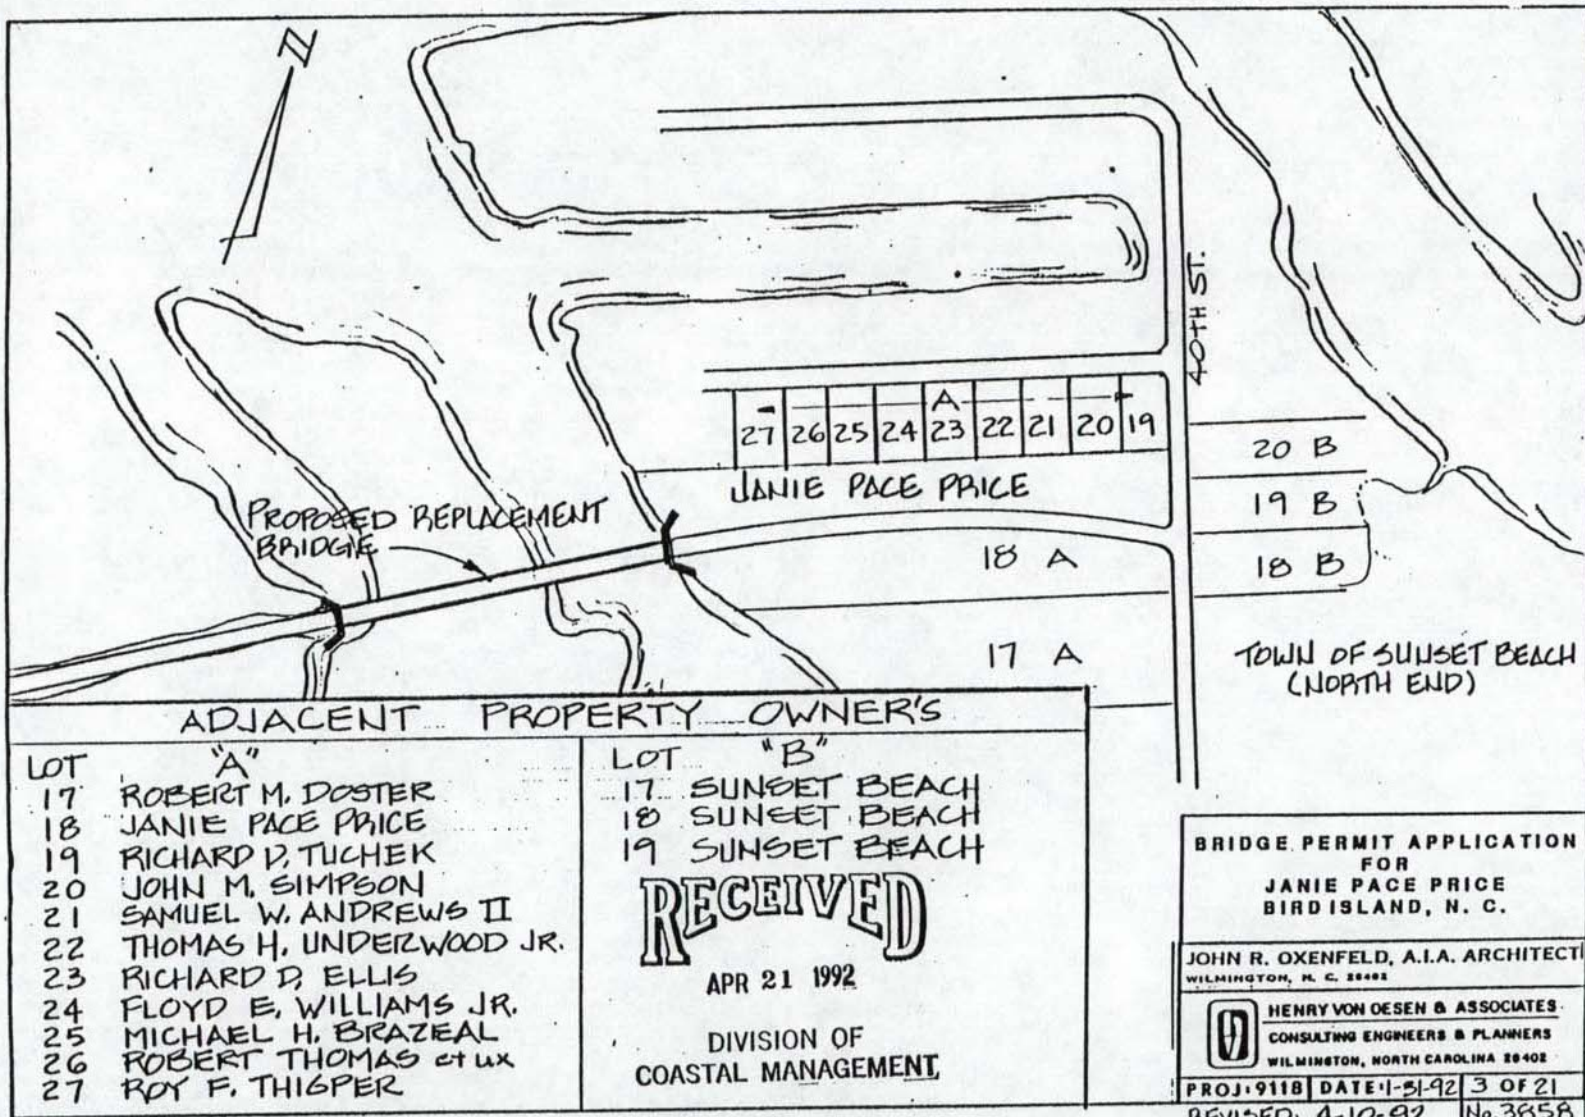 N
40TH ST.
A
27 26 25 24 23 22 21 20 19
20 B
JANIE PACE PRICE
19 B
PROPOSED REPLACEMENT
BRIDGE
18 A
18 B
17 A
TOWN OF SUNSET BEACH
(NORTH END)
ADJACENT PROPERTY OWNER'S
LOT "A"
17 ROBERT M. DOSTER
18 JANIE PACE PRICE
19 RICHARD D. TUCHEK
20 JOHN M. SIMPSON
21 SAMUEL W. ANDREWS II
22 THOMAS H. UNDERWOOD JR.
23 RICHARD D. ELLIS
24 FLOYD E. WILLIAMS JR.
25 MICHAEL H. BRAZEAL
26 ROBERT THOMAS et ux
27 ROY F. THIGPER
LOT "B"
17 SUNSET BEACH
18 SUNSET BEACH
19 SUNSET BEACH
RECEIVED
APR 21 1992
DIVISION OF
COASTAL MANAGEMENT
BRIDGE PERMIT APPLICATION
FOR
JANIE PACE PRICE
BIRD ISLAND, N. C.
JOHN R. OXENFELD, A.I.A. ARCHITECT
WILMINGTON, N. C. 28402
HENRY VON OESEN & ASSOCIATES
CONSULTING ENGINEERS & PLANNERS
WILMINGTON, NORTH CAROLINA 28402
PROJ: 9118 DATE: 1-31-92 3 OF 21
REVISED: 4-10-92 No 3858